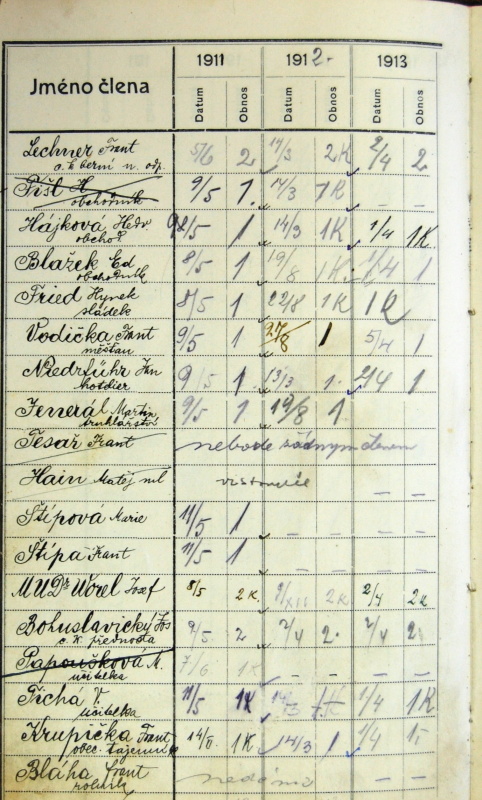 Jméno člena 1911 1912. 1913
Datum Obnos Datum Obnos Datum Obnos
Lechner Frant 5/6 2 14/3 2K 2/4 2
Fišl H 9/5 1. 14/3 1K – –
obchodník
Hájková Hedv 9/5 1 14/3 1K 1/4 1K.
obchod
Blažek Ed 8/5 1 19/8 1K 1/4 1
obchodník
Fried Hynek 8/5 1 22/8 1K 1K
sládek
Vodička Frant 9/5 1 27/8 1 5/4 1
měšťan
Niedrführ Jan 9/5 1. 13/3 1. 2/4 1
hotelier
Jenerál Martin 9/5 1 19/8 1
truhlářství
Tesař Frant nebude žádným členem
Hain Matěj ml – –
Štípová Marie 11/5 1 – – – –
Štípa Frant 11/5 1 – – – –
MUDr Worel Josef 8/5 2K. 9/XII 2K 2/4 2K
Bohuslavický Jos 9/5 2 2/4 2. 2/4 2
c. k. přednosta
Papoušková M. 7/6 1K – – – –
učitelka
Tichá V 11/5 1K 14/3 1K 1/4 1K
učitelka
Krupička Frant 14/V. 1K 14/3 1 1/4 1
obec. tajemník
Bláha Frant nedává – –
rolník